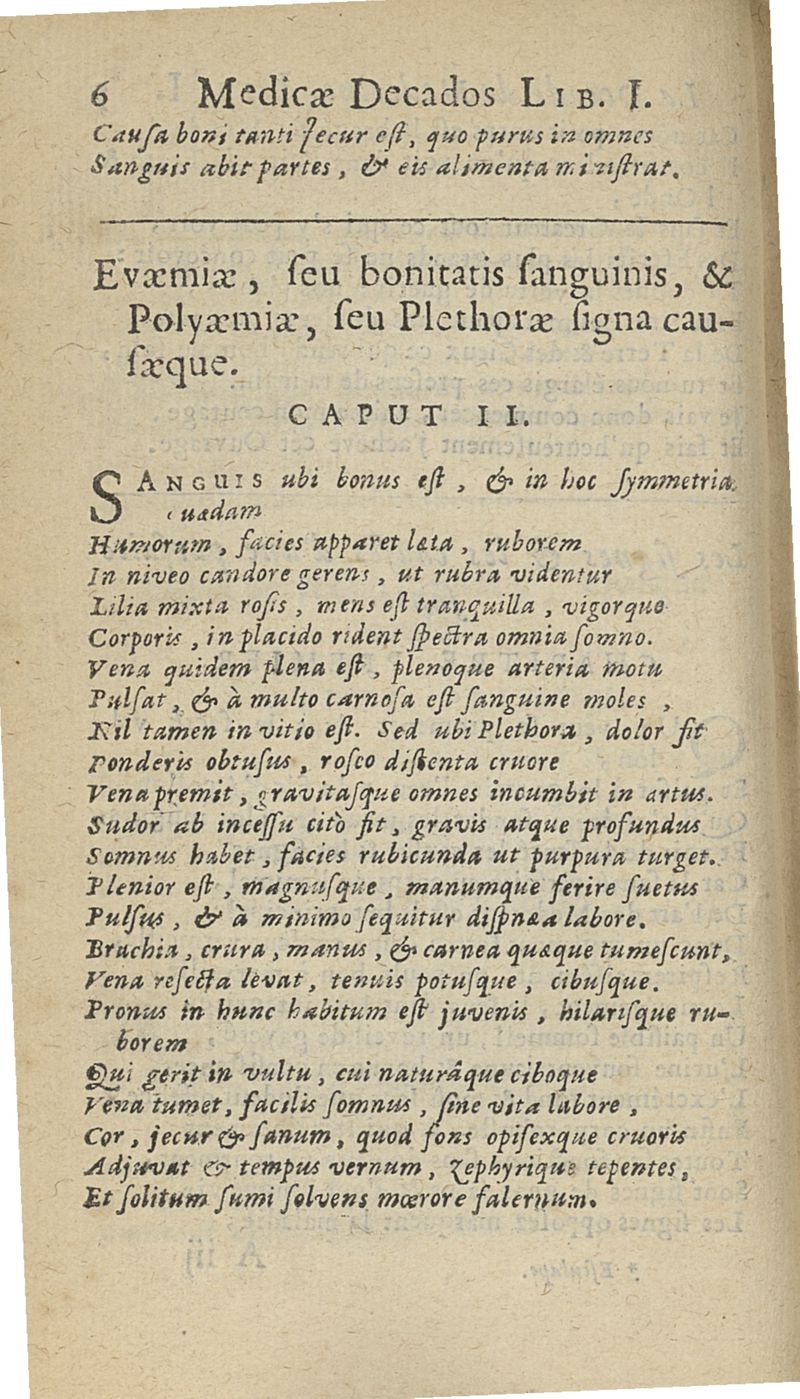 6 Medicæ Decados LIB. I.
Cauſa boni tanti Jecur eſt, quo purus in omnes
Sanguis abit partes, & eis alimenta miniſtrat.
Evæmiæ, ſeu bonitatis ſanguinis, &
Polyæmiæ, ſeu Plethoræ ſigna cau-
ſæque.
CAPUT II.
SANGUIS ubi bonus eſt, & in hoc ſymmetria
Humorum, facies apparet læta, ruborem
In niveo candore gerens, ut rubra videntur
Lilia mixta roſis, mens eſt tranquilla, vigorque
Corporis, in placido rident ſpectra omnia ſomno.
Vena quidem plena eſt, plenoque arteria motu
Pulſat, & à multo carnoſa eſt ſanguine moles,
Nil tamen in vitio eſt. Sed ubi Plethora, dolor fit
Ponderis obtuſus, roſeo diſtenta cruore
Vena premit, gravitaſque omnes incumbit in artus.
Sudor ab inceſſu citò fit, gravis atque profundus
Somnus habet, facies rubicunda ut purpura turget.
Plenior eſt, magnuſque, manumque ferire ſuetus
Pulſus, & à minimo ſequitur diſpnæa labore.
Brachia, crura, manus, & carnea quæque tumeſcunt,
Vena reſecta levat, tenuis potuſque, cibuſque.
Pronus in hunc habitum eſt juvenis, hilariſque ru-
borem
Qui gerit in vultu, cui naturâque ciboque
Vena tumet, facilis ſomnus, ſine vita labore,
Cor, jecur & ſanum, quod fons opifexque cruoris
Adjuvat & tempus vernum, Zephyrique tepentes,
Et ſolitum ſumi ſolvens mœrore falernum.